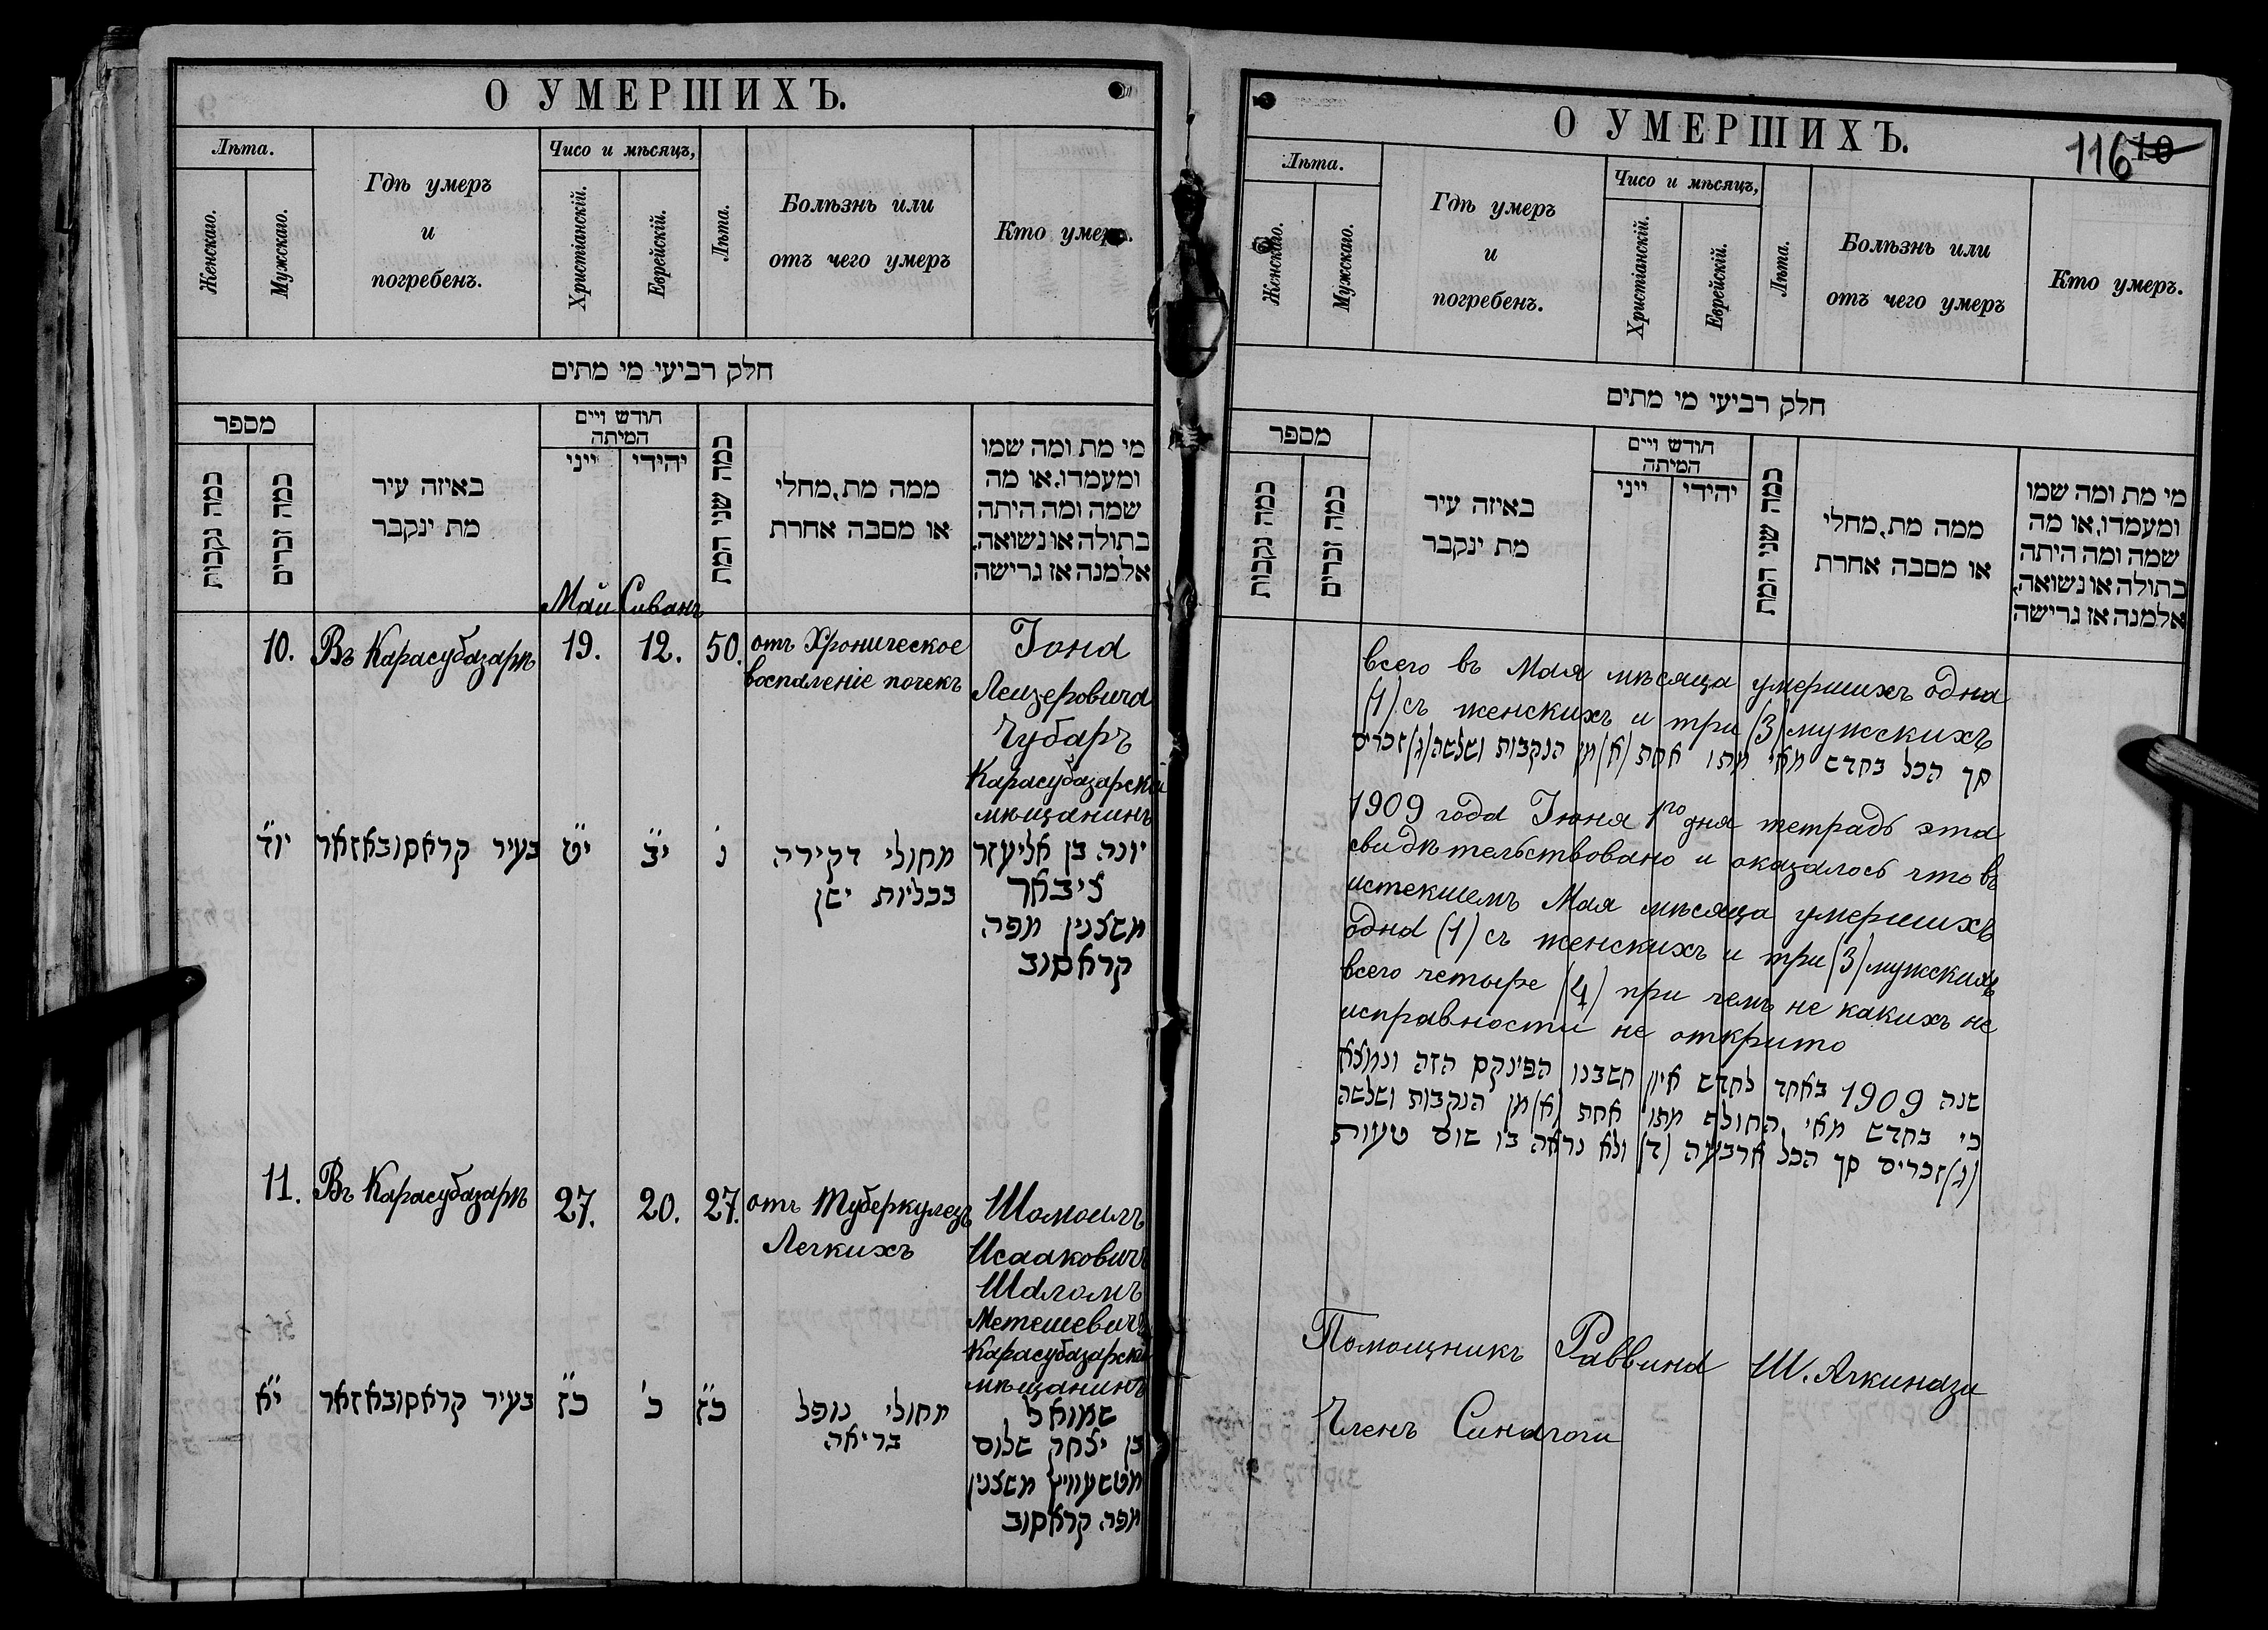 О УМЕРШИХЪ.
Лѣта.
Женскаго.
Мужскаго.
Гдѣ умеръ
и
погребенъ.
Чисо и мѣсяцъ,
Христіанскій.
Еврейскій.
Лѣта.
Болѣзнь или
отъ чего умеръ
Кто умеръ.
חלק רביעי מי מתים
מספר
כמה נקבות
כמה זכרים
באיזה עיר
מת ינקבר
חודש ויים
המיתה
ייני
יהידי
כמה שני המת
ממה מת, מחלי
או מסבה אחרת
מי מת ומה שמו
ומעמדו, או מה
שמה ומה היתה
בתולה או נשואה,
אלמנה אז גרישה
Май Сиванъ
10. Въ Карасубазарѣ 19. 12. 50.
отъ Хроническое
воспаленіе почекъ
Іона
Леизеровича
Чубаръ
Карасубазарскій
мѣщанинъ
יו״ד
בעיר קראסובאזאר
י״ט
י״ב
נ
מחולי דקירה
בכליות ישן
יונה בן אליעזר
ציבאר
משצנין מפה
קראסוב
11. Въ Карасубазарѣ 27. 20. 27.
отъ Туберкулезъ
Легкихъ
Шомоилъ
Исааковичъ
Шаломъ
Метешевичъ
Карасубазарскі
мѣщанинъ
י״א
בעיר קראסובאזאר
כ״ז
כ׳
כ״ז
מחולי נופל
בריאה
שמואל
בן יצחק שלום
מטשעוויץ משצנין
מפה קראסוב
О УМЕРШИХЪ.
116 10
Лѣта.
Женскаго.
Мужскаго.
Гдѣ умеръ
и
погребенъ.
Чисо и мѣсяцъ,
Христіанскій.
Еврейскій.
Лѣта.
Болѣзнь или
отъ чего умеръ
Кто умеръ.
חלק רביעי מי מתים
מספר
כמה נקבות
כמה זכרים
באיזה עיר
מת ינקבר
חודש ויים
המיתה
ייני
יהידי
כמה שני המת
ממה מת, מחלי
או מסבה אחרת
מי מת ומה שמו
ומעמדו, או מה
שמה ומה היתה
בתולה או נשואה,
אלמנה אז גרישה
всего въ Мая мѣсяца умершихъ одна
(1) съ женскихъ и три (3) мужскихъ
סך הכל בחדש מאי מתו אחת (א) מן הנקבות ושלשה (ג) זכרים
1909 года Іюня 1го дня тетрадь эта
свидѣтельствовано и оказалось что въ
истекшемъ Мая мѣсяца умершихъ
одна (1) съ женскихъ и три (3) мужскихъ
всего четыре (4) при чемъ не какихъ не
исправности не открито
שנה 1909 באחד לחדש איון חשבנו הפינקס הזה ונמצא
כי בחדש מאי החולף מתו אחת (א) מן הנקבות ושלשה
(ג) זכרים סך הכל ארבעה (ד) ולא נראה בו שום טעות
Помощникъ Раввина Ш. Ачкинази
Членъ Синагоги